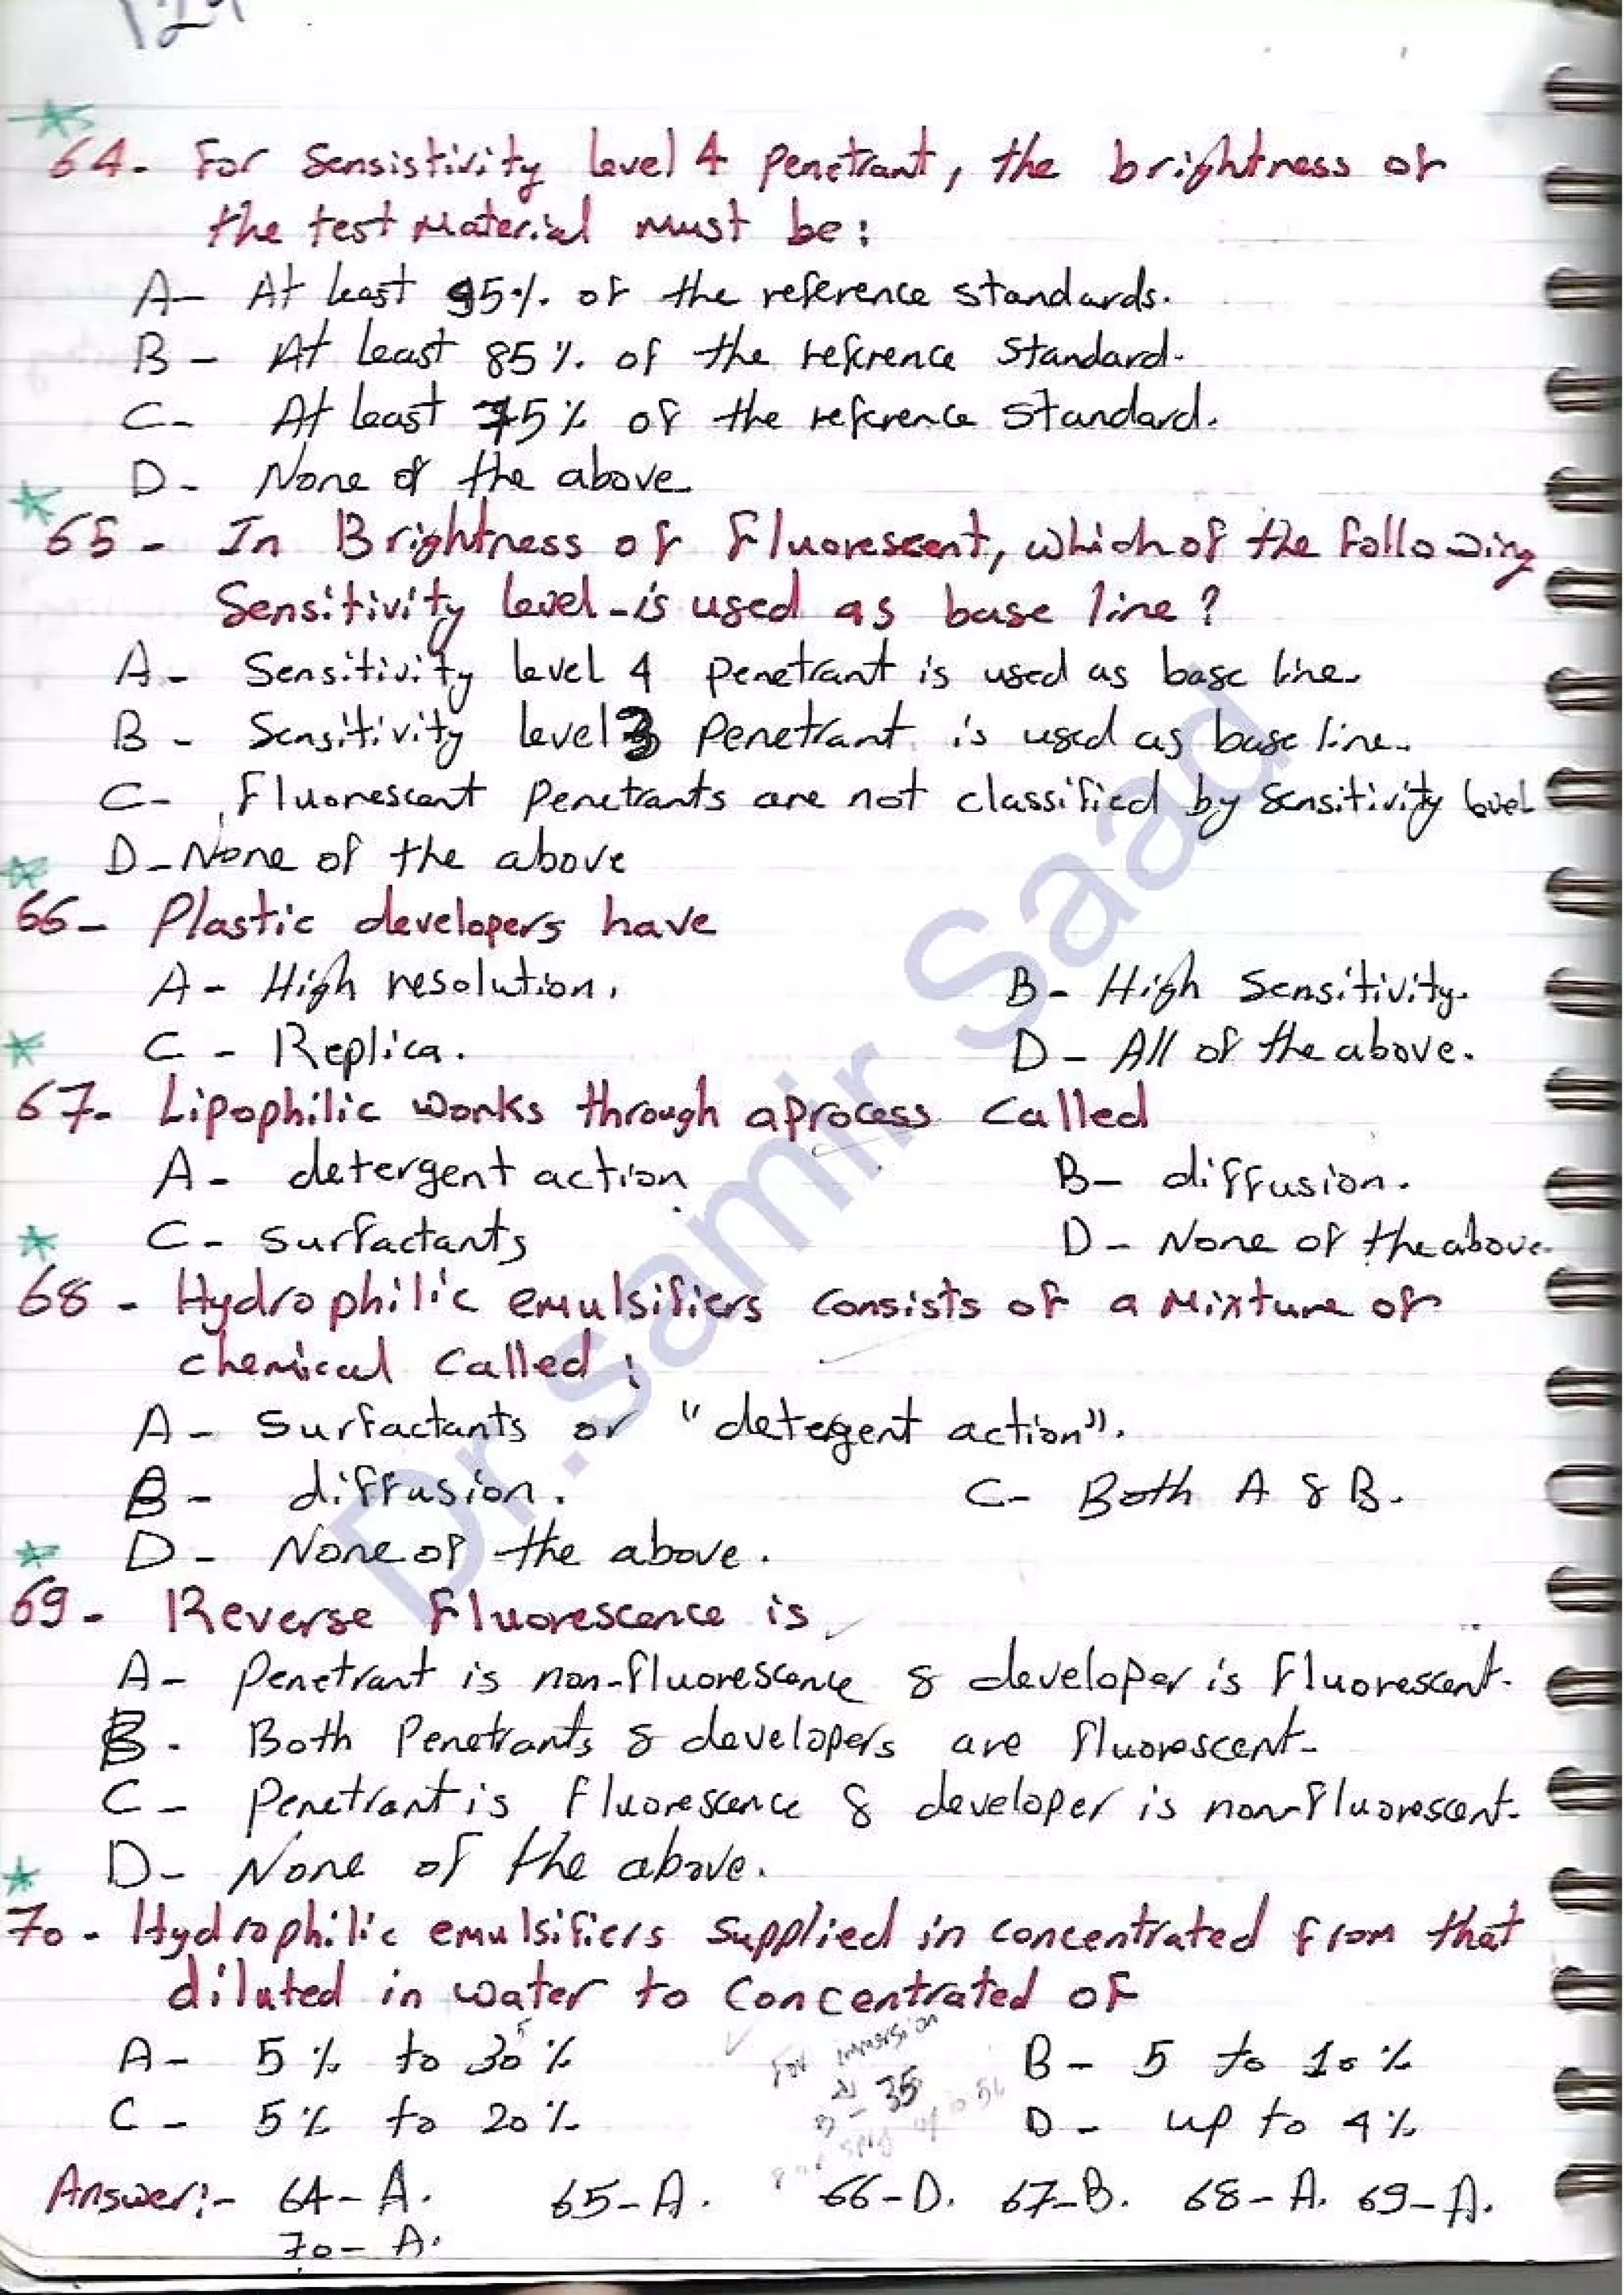 129
64- For Sensistivity level 4 Penetrant, the brightness of
the test Material Must be:
A- At least 95% of the reference standards.
B- At least 85% of the reference standard.
C- At least 75% of the reference standard.
D- None of the above
65- In Brightness of Fluorescent, which of the following
Sensitivity level-is used as base line?
A- Sensitivity level 4 penetrant is used as base line.
B- Sensitivity level 3 penetrant is used as base line.
C- Fluorescent Penetrants are not classified by sensitivity level
D- None of the above
66- Plastic developers have
A- High resolution. B- High Sensitivity.
C- Replica. D- All of the above.
67- Lipophilic works through a process called
A- detergent action B- diffusion.
C- surfactants D- None of the above
68- Hydrophilic emulsifiers consists of a Mixture of
chemical called:
A- surfactants or "detergent action".
B- diffusion. C- Both A & B.
D- None of the above.
69- Reverse Fluorescence is
A- penetrant is non-fluorescence & developer is fluorescent.
B- Both Penetrants & developers are fluorescent-
C- penetrant is fluorescence & developer is non-fluorescent.
D- None of the above.
70- Hydrophilic emulsifiers supplied in concentrated from that
diluted in water to concentrated of
A- 5% to 30% B- 5 to 10%
For immersion
35
C- 5% to 20% D- up to 4%
Answer:- 64-A. 65-A. 66-D. 67-B. 68-A. 69-A.
70-A.
Dr.samir Saad